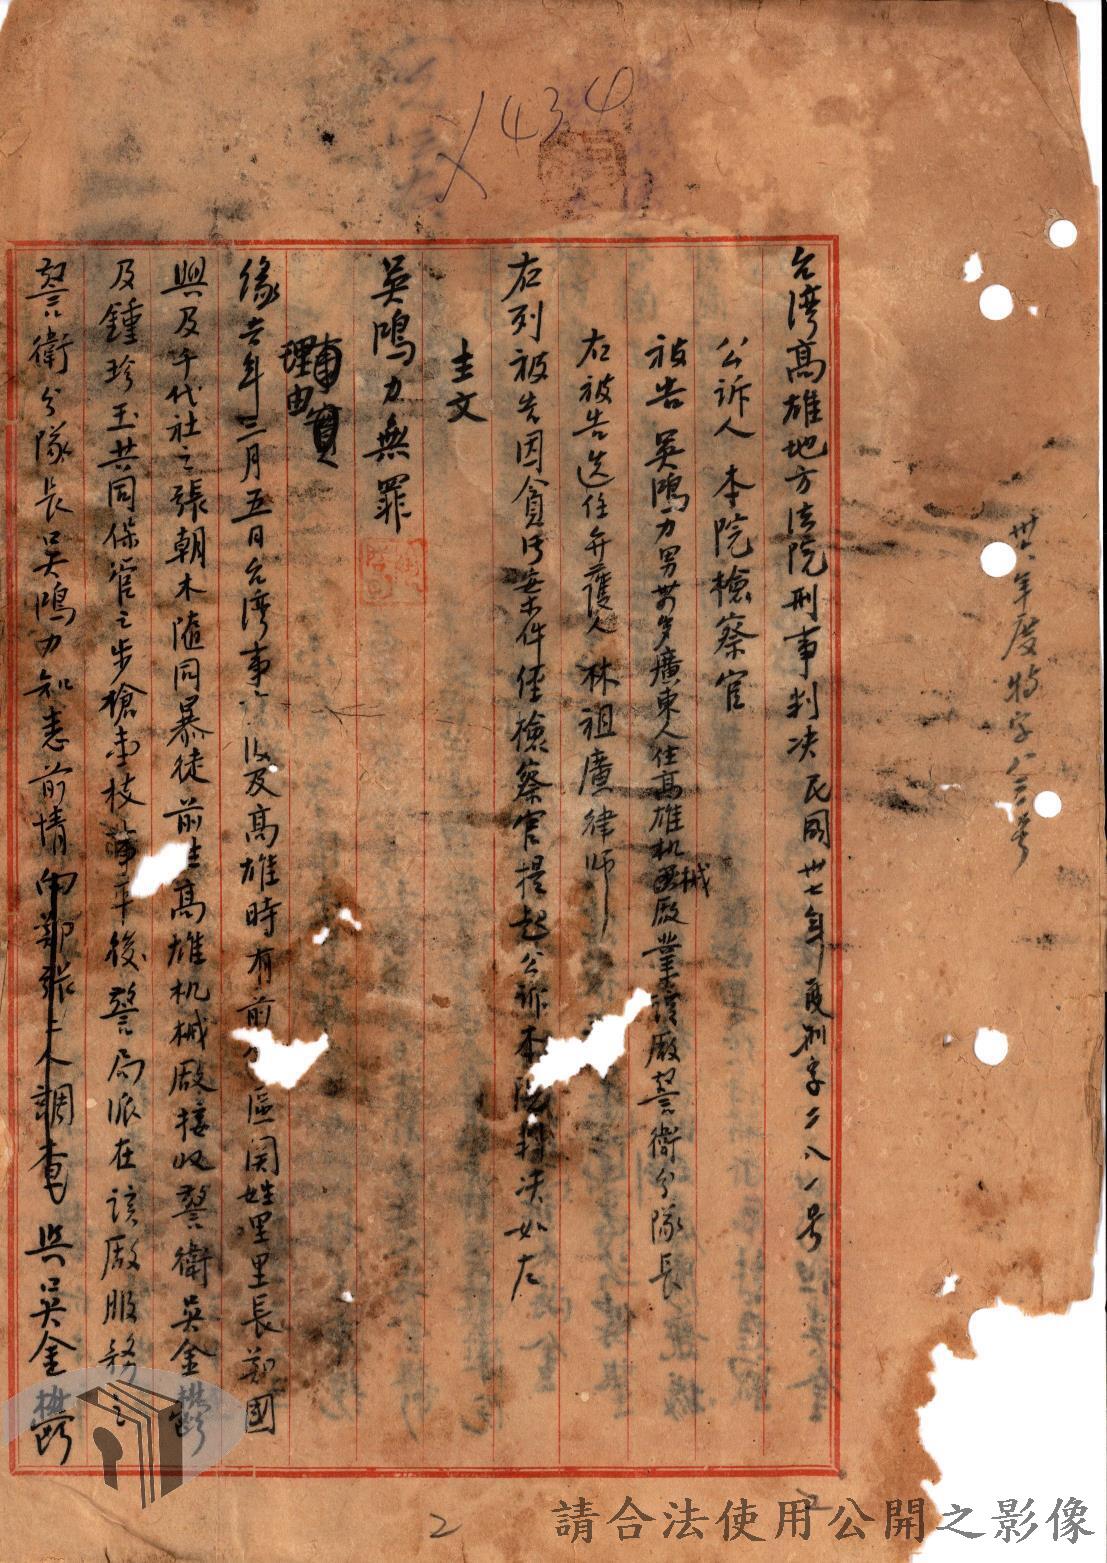 1434
卅六年度特字八三号
台湾高雄地方法院刑事判决民國卅七年度刑字二八一号
公诉人 本院檢察官
被告 吳鴻力男廣東人住高雄机械廠業該廠警衛分隊長
右被告选任弁護人林祖廣律师
右列被告因貪污案件経檢察官提起公訴本院判决如左
主文
吳鴻力無罪
理由
緣去年三月五日台湾事波及高雄時有前区関姓里里長鄭國
興及千代社之張朝木隨同暴徒前往高雄机械廠接收警衛吳金
及鍾珍玉共同保管之步槍壹枝事平後警局派在該廠服務之
警衛分隊長吳鴻力知悉前情向鄭張二人調查與吳金
2
請合法使用公開之影像